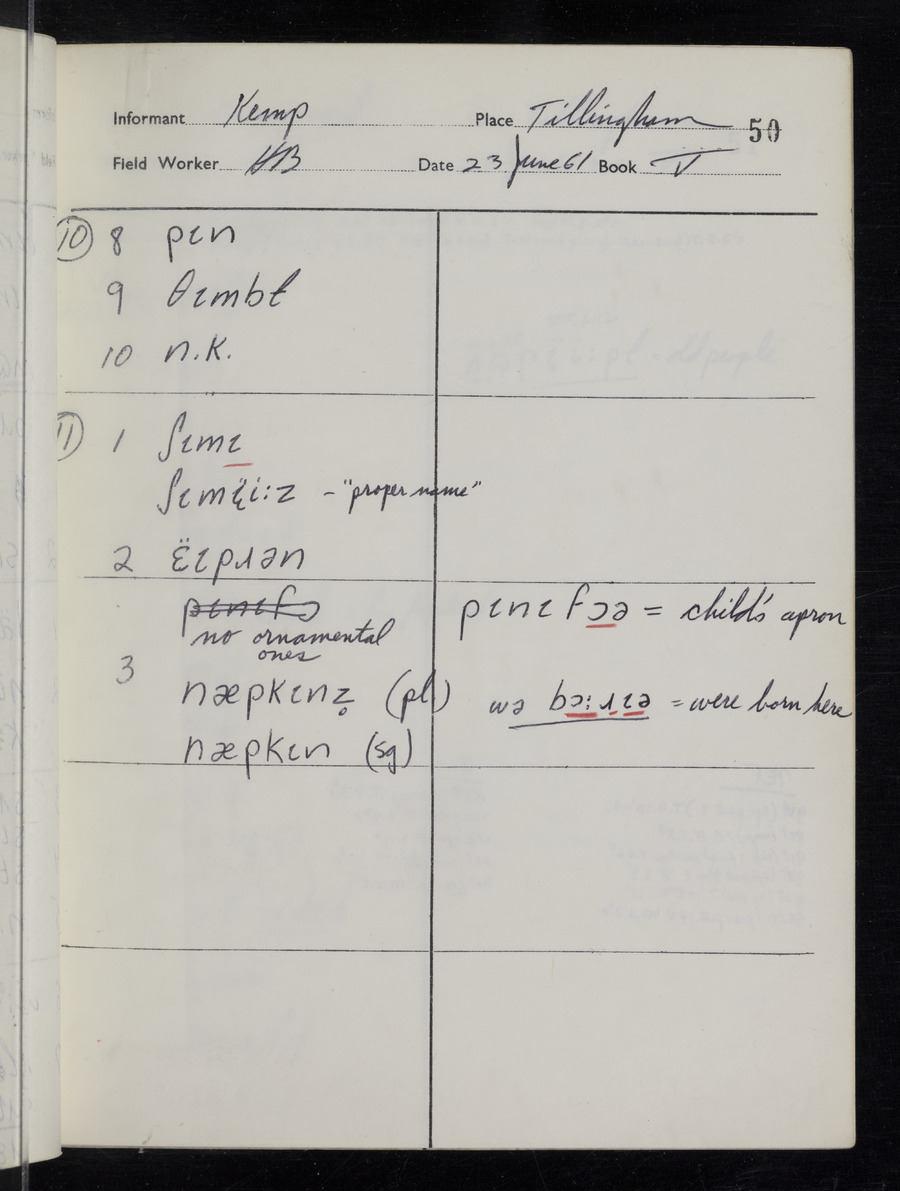 Informant Kemp Place Tillingham 50
Field Worker HB Date 23 June 61 Book V
10 8 pɪn
9 θɪmbɫ
10 n.k.
11 1 ʃɪmɪ
ʃɪmɪ̈i:z - "proper name"
2 ɛ̈ɪpɹən
pɪnɪfɔ
no ornamental
ones
pɪnɪfɔə = child's apron
3
næpkɪnz̥ (pl)
wə bɔ:ɹɪə = were born here
næpkɪn (sg)